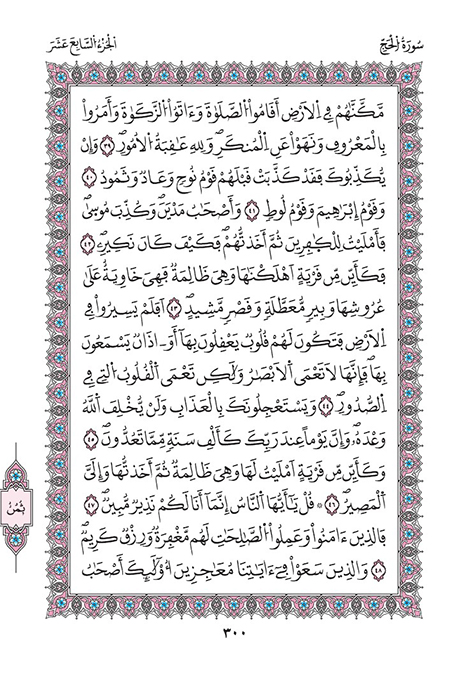 سُورَةُ الْحَجِّ
الْجُزْءُ السَّابِعَ عَشَرَ
مَّكَّنَّٰهُمْ فِے اِ۬لَارْضِ أَقَامُواْ اُ۬لصَّلَوٰةَ وَءَاتَوُاْ اُ۬لزَّكَوٰةَ وَأَمَرُواْ
بِالْمَعْرُوفِ وَنَهَوْاْ عَنِ اِ۬لْمُنكَرِۖ وَلِلهِ عَٰقِبَةُ اُ۬لُامُورِۖ ٣٩ وَإِنْ
يُّكَذِّبُوكَ فَقَدْ كَذَّبَتْ قَبْلَهُمْ قَوْمُ نُوحٖ وَعَادٞ وَثَمُودُ ٤٠
وَقَوْمُ إِبْرَٰهِيمَ وَقَوْمُ لُوطٖ ٤١ وَأَصْحَٰبُ مَدْيَنَۖ وَكُذِّبَ مُوس۪يٰ
فَأَمْلَيْتُ لِلْكٰ۪فِرِينَ ثُمَّ أَخَذتُّهُمْۖ فَكَيْفَ كَانَ نَكِيرِۦۖ ٤٢
فَكَأَيِّن مِّن قَرْيَةٍ اَهْلَكْنَٰهَا وَهِيَ ظَالِمَةٞ فَهِيَ خَاوِيَةٌ عَلَيٰ
عُرُوشِهَا وَبِيرٖ مُّعَطَّلَةٖ وَقَصْرٖ مَّشِيدٍۖ ٤٣ اَفَلَمْ يَسِيرُواْ فِے
اِ۬لَارْضِ فَتَكُونَ لَهُمْ قُلُوبٞ يَعْقِلُونَ بِهَا أَوَ اٰذَانٞ يَسْمَعُونَ
بِهَاۖ فَإِنَّهَا لَا تَعْمَي اَ۬لَابْصَٰرُ وَلَٰكِن تَعْمَي اَ۬لْقُلُوبُ اُ۬لتِے فِے
اِ۬لصُّدُورِۖ ٤٤ وَيَسْتَعْجِلُونَكَ بِالْعَذَابِ وَلَنْ يُّخْلِفَ اَ۬للَّهُ
وَعْدَهُۥۖ وَإِنَّ يَوْماً عِندَ رَبِّكَ كَأَلْفِ سَنَةٖ مِّمَّا تَعُدُّونَۖ ٤٥
وَكَأَيِّن مِّن قَرْيَةٍ اَمْلَيْتُ لَهَا وَهِيَ ظَالِمَةٞ ثُمَّ أَخَذتُّهَا وَإِلَيَّ
اَ۬لْمَصِيرُۖ ٤٦ ۞ قُلْ يَٰٓأَيُّهَا اَ۬لنَّاسُ إِنَّمَآ أَنَا لَكُمْ نَذِيرٞ مُّبِينٞۖ ٤٧
فَالذِينَ ءَامَنُواْ وَعَمِلُواْ اُ۬لصَّٰلِحَٰتِ لَهُم مَّغْفِرَةٞ وَرِزْقٞ كَرِيمٞۖ
٤٨ وَالذِينَ سَعَوْاْ فِےٓ ءَايَٰتِنَا مُعَٰجِزِينَ أُوْلَٰٓئِكَ أَصْحَٰبُ
ثُمُنُ
٣٠٠